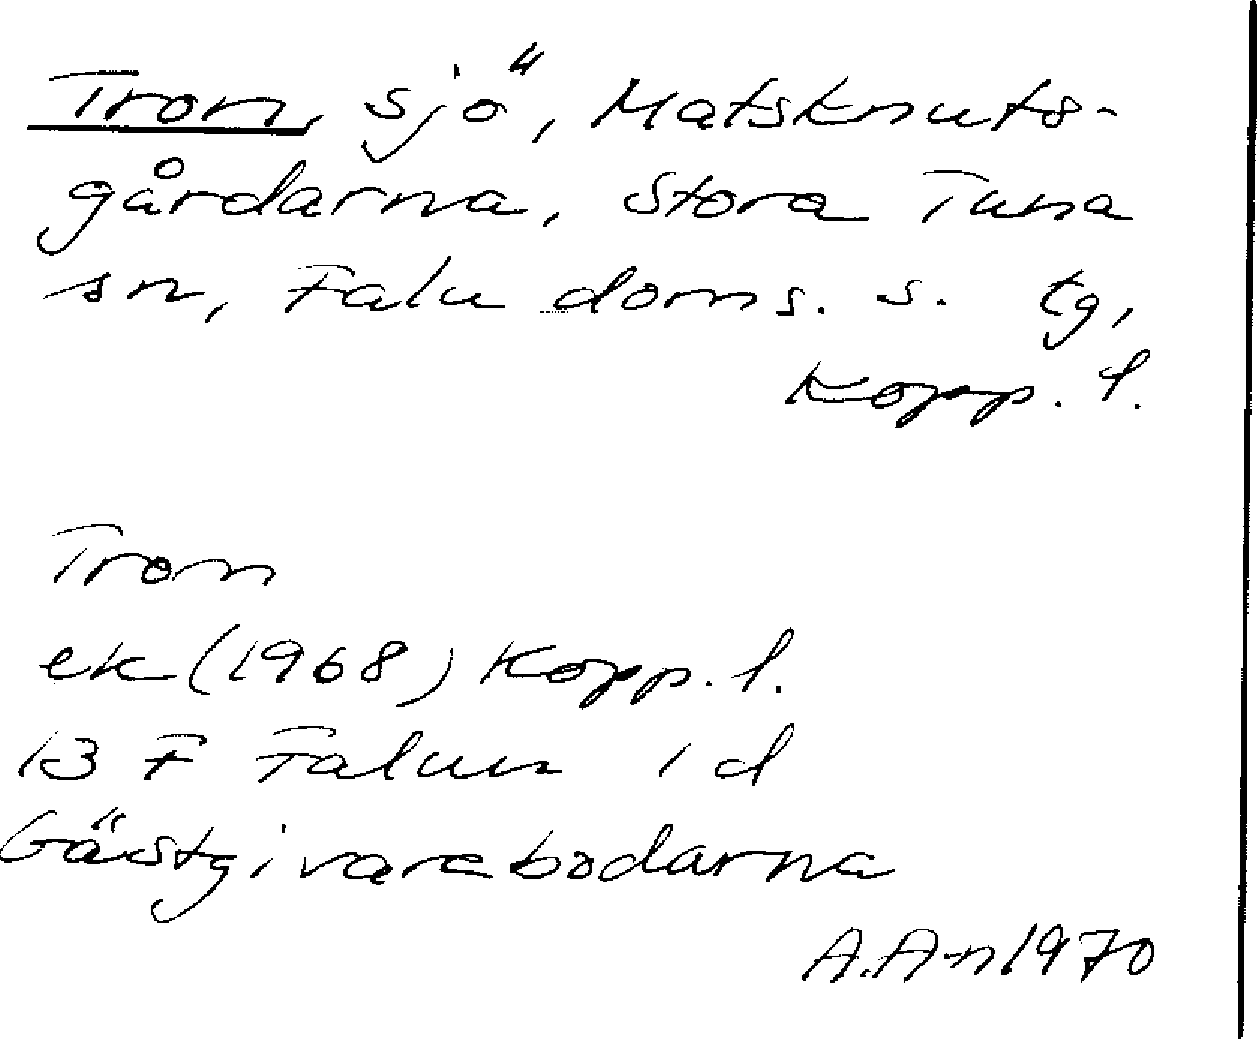 Tron, sjö, Matsknuts-
gårdarna, Stora Tuna
sn, Falu doms. s. tg,
Kopp. l.
Tron
ek (1968) Kopp. l.
13 F Falun 1 d
Gästgivarebodarna
A.A-n 1970